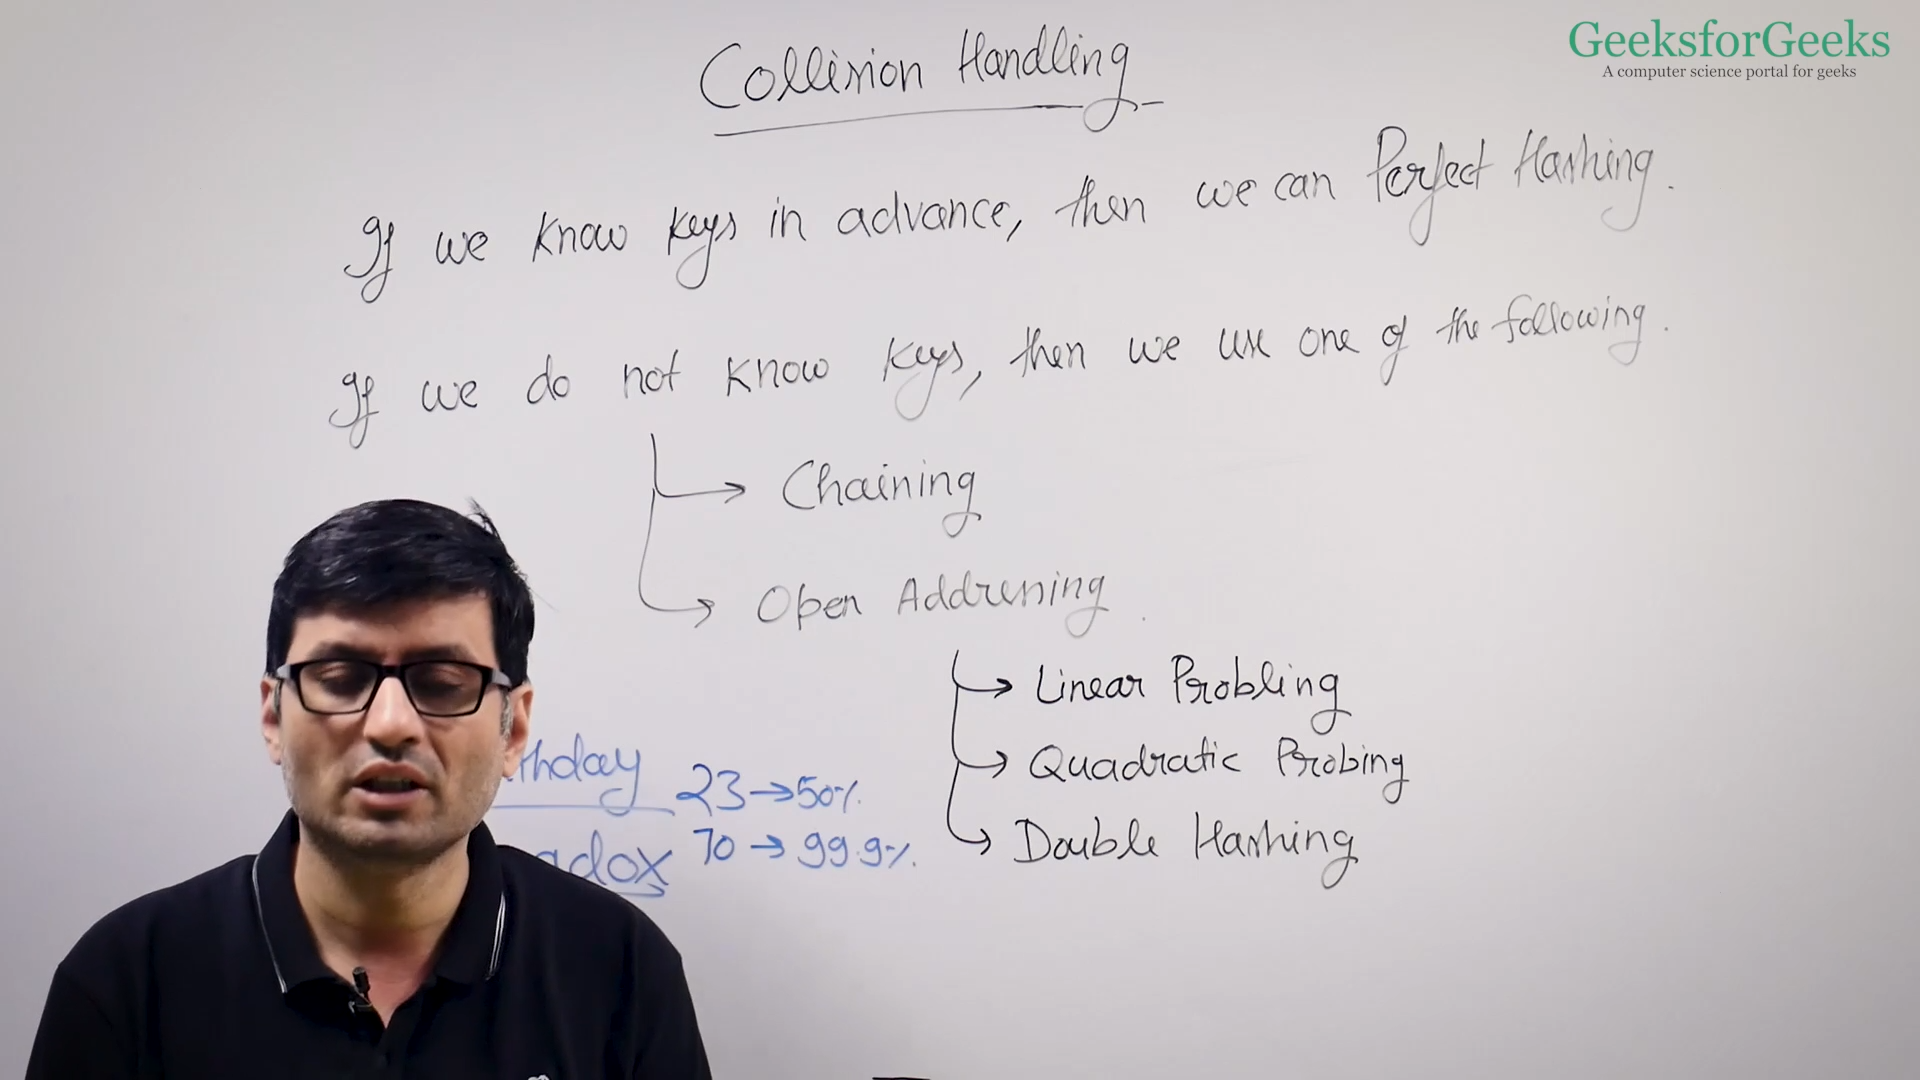 GeeksforGeeks
A computer science portal for geeks
Collision Handling
If we know keys in advance, then we can Perfect Hashing.
If we do not know keys, then we use one of the following.
Chaining
Open Addressing
Linear Probling
Quadratic Probing
Double Hashing
thday 23 → 50%
adox 70 → 99.9%.